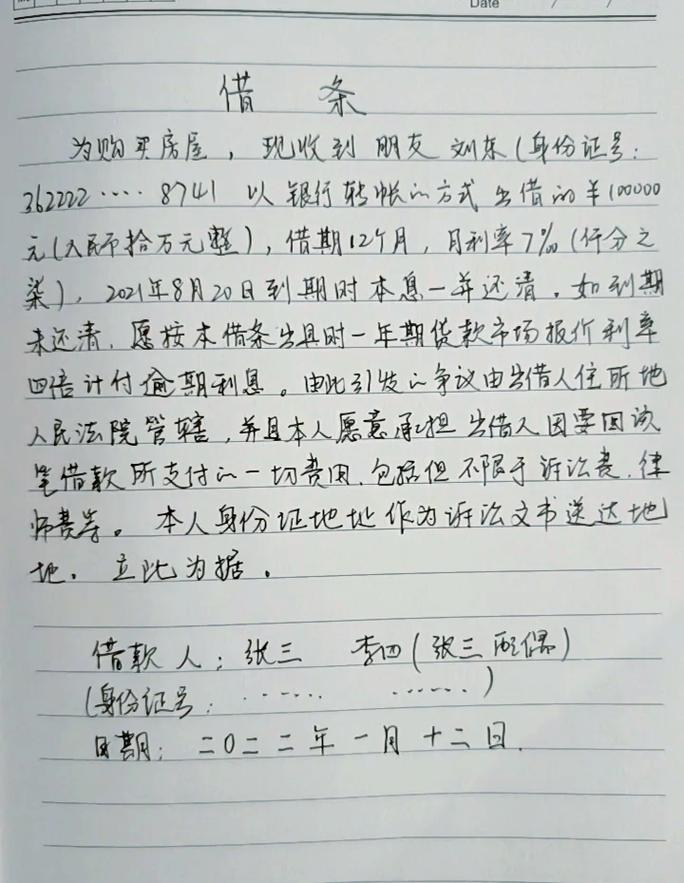 Date / /
借 条
为购买房屋，现收到朋友刘东(身份证号:
362222····8741 以银行转帐的方式出借的￥100000
元(人民币拾万元整)，借期12个月，月利率7‰(仟分之
柒)，2021年8月20日到期时本息一并还清。如到期
未还清，愿按本借条出具时一年期贷款市场报价利率
四倍计付逾期利息。由此引发的争议由出借人住所地
人民法院管辖，并且本人愿意承担出借人因要回该
笔借款所支付的一切费用，包括但不限于诉讼费、律
师费等。本人身份证地址作为诉讼文书送达地
地。立此为据。
借款人: 张三 李四(张三配偶)
(身份证号: ······ ······)
日期: 二〇二二年一月十二日.